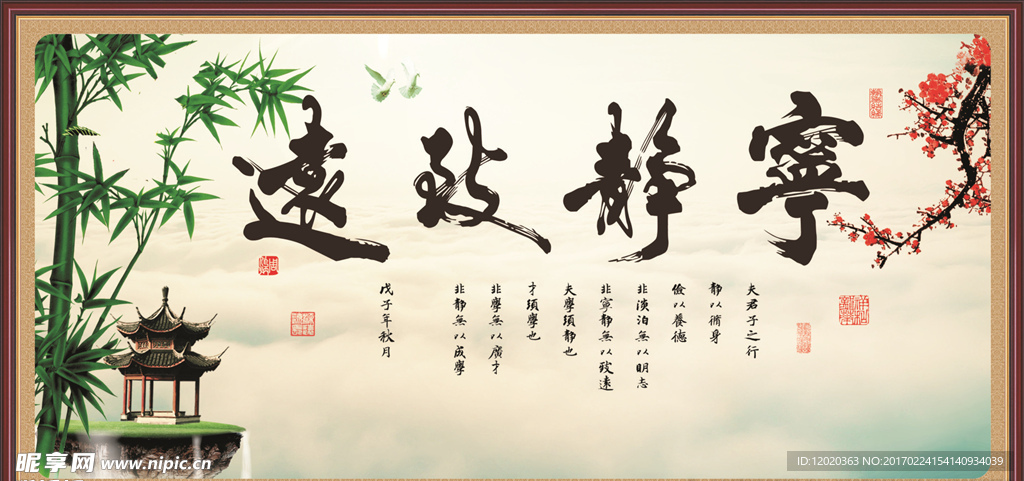 寧靜致遠
夫君子之行
靜以脩身
儉以養德
非淡泊無以明志
非寧靜無以致遠
夫學須靜也
才須學也
非學無以廣才
非靜無以成學
戊子年秋月
昵享网 www.nipic.cn
ID:12020363 NO:20170224154140934039